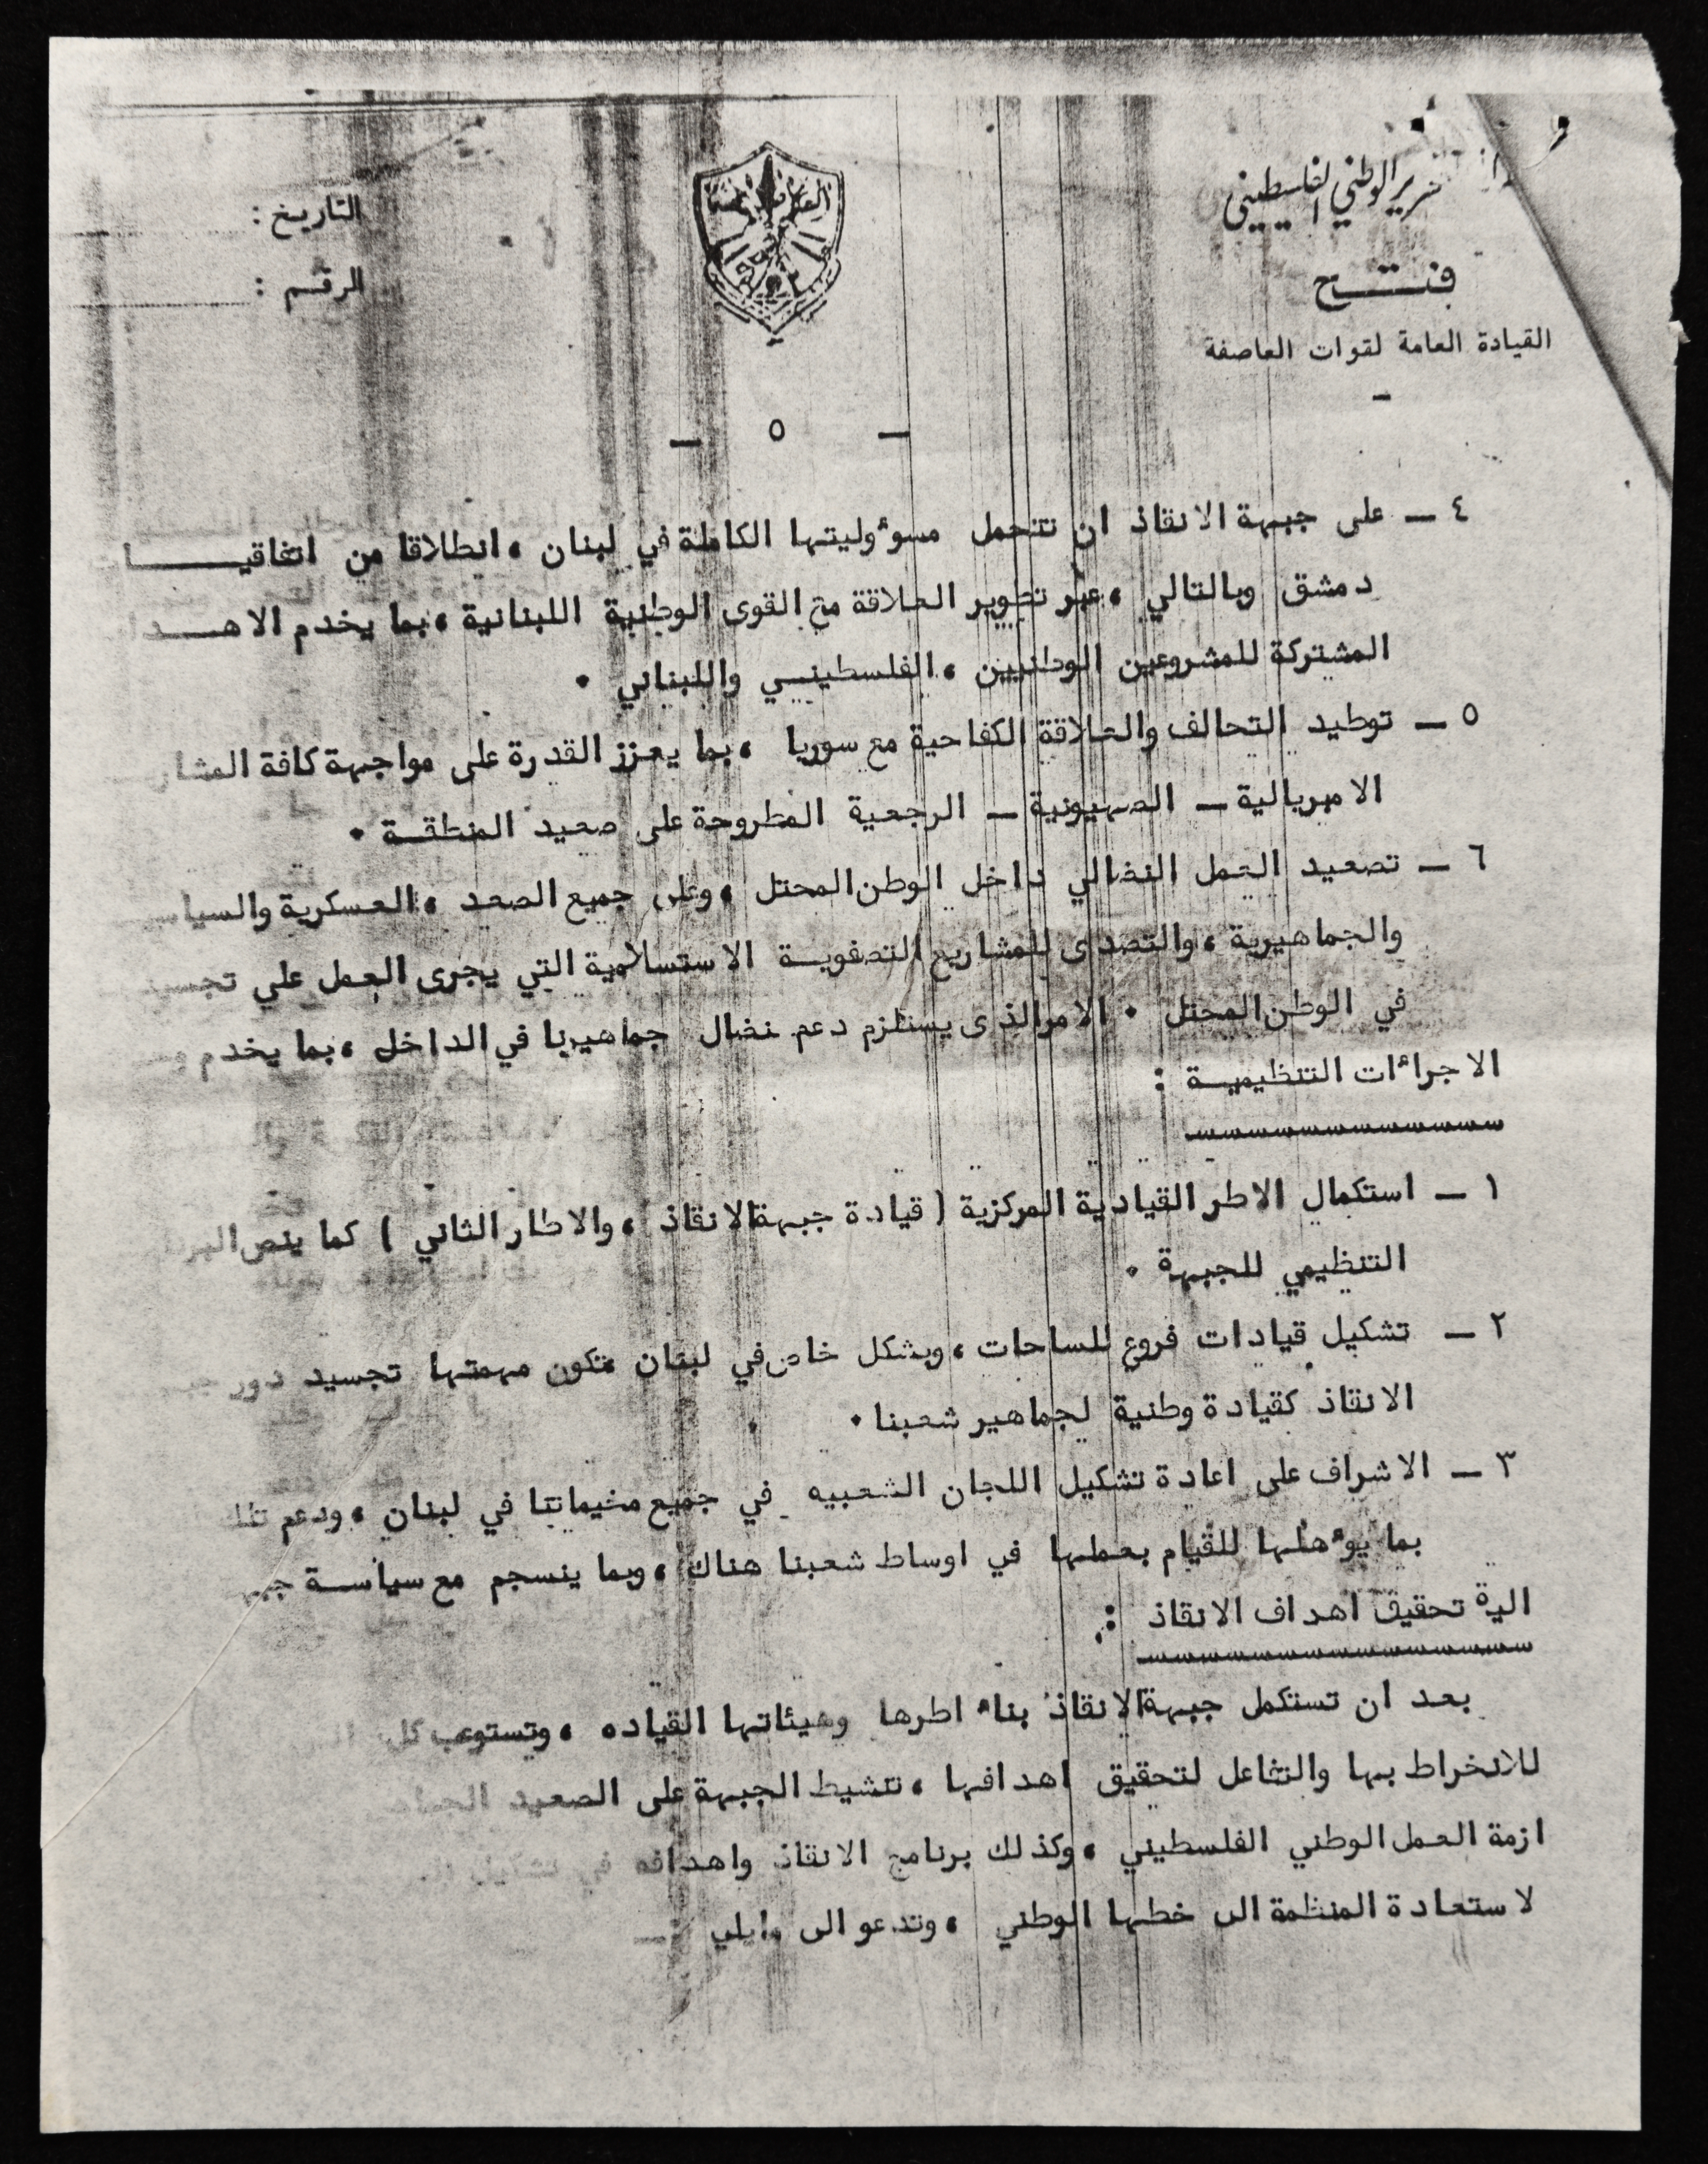 التحرير الوطني الفلسطيني
فتح
القيادة العامة لقوات العاصفة
التاريخ :
الرقم :
العاصفة
فتح
— ٥ —
٤ — على جبهة الانقاذ ان تتحمل مسوٴوليتها الكاملة في لبنان ، انطلاقا من
دمشق وبالتالي ، عبر تطوير العلاقة مع القوى الوطنية اللبنانية ، بما يخدم
المشتركة للمشروعين الوطنيين ، الفلسطيني واللبناني .
٥ — توطيد التحالف والعلاقة الكفاحية مع سوريا ، بما يعزز القدرة على مواجهة كافة
الامبريالية — الصهيونية — الرجعية المطروحة على صعيد المنطقة .
٦ — تصعيد العمل النضالي داخل الوطن المحتل ، وعلى جميع الصعد ، العسكرية
والجماهيرية ، والتصدى للمشاريع التصفوية الاستسلامية التي يجرى العمل على
في الوطن المحتل . الامر الذى يستلزم دعم نضال جماهيرنا في الداخل ، بما يخدم
الاجراءات التنظيمية :
١ — استكمال الاطر القيادية المركزية ( قيادة جبهة الانقاذ ، والاطار الثاني ) كما ينص
التنظيمي للجبهة .
٢ — تشكيل قيادات فروع للساحات ، وبشكل خاص في لبنان تكون مهمتها تجسيد دور
الانقاذ كقيادة وطنية لجماهير شعبنا .
٣ — الاشراف على اعادة تشكيل اللجان الشعبيه في جميع مخيماتنا في لبنان ، ودعم
بما يوٴهلها للقيام بعملها في اوساط شعبنا هناك ، وبما ينسجم مع سياسة
الية تحقيق اهداف الانقاذ :
بعد ان تستكمل جبهة الانقاذ بناء اطرها وهيئاتها القياده ، وتستوعب كل
للانخراط بها والتفاعل لتحقيق اهدافها ، تنشيط الجبهة على الصعيد
ازمة العمل الوطني الفلسطيني ، وكذلك برنامج الانقاذ واهدافه في
لاستعادة المنظمة الى خطها الوطني ، وتدعو الى مايلي :—